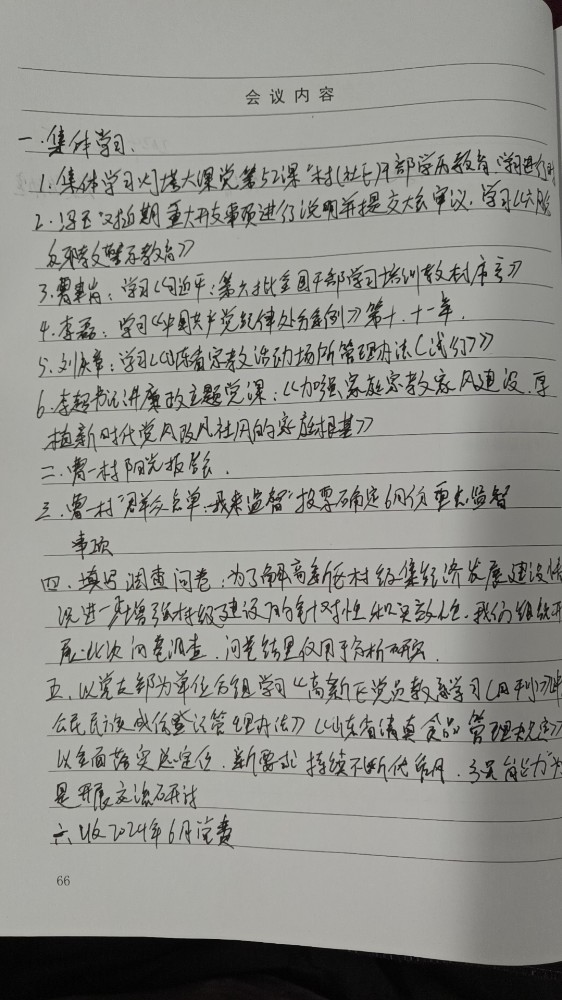 会议内容
一.集体学习.
1.集体学习灯塔大课堂第52课"村(社区)干部学历教育,学习进行时
2.对近期重大开支事项进行说明并提交大会审议,学习《
反邪教警示教育》
3.曹聿肖:学习《习近平:第六批全国干部学习培训教材序言》
4.李磊:学习《中国共产党纪律处分条例》第十.十一章.
5.刘庆章:学习《山东省宗教活动场所管理办法(试行)》
6.李超书记讲廉政主题党课:《加强家庭家教家风建设,厚
植新时代党风政风社风的家庭根基》
二.曹一村阳光报告会.
三.曹一村"群众点单.我来监督"投票确定6月份重点监督
事项
四.填写调查问卷:为了解高新区村级集经济发展建设情
况进一步增强村级建设的针对性和实效性,我们组织开
展此次问卷调查.问卷结果仅用于分析研究.
五.以党支部为单位分组学习《高新区党员教育学习(月刊)》《中
公民民族成份登记管理办法》《山东省清真食品管理规定》
以全面落实总定位,新要求 持续不断
是开展交流研讨
六.收2024年6月党费
66